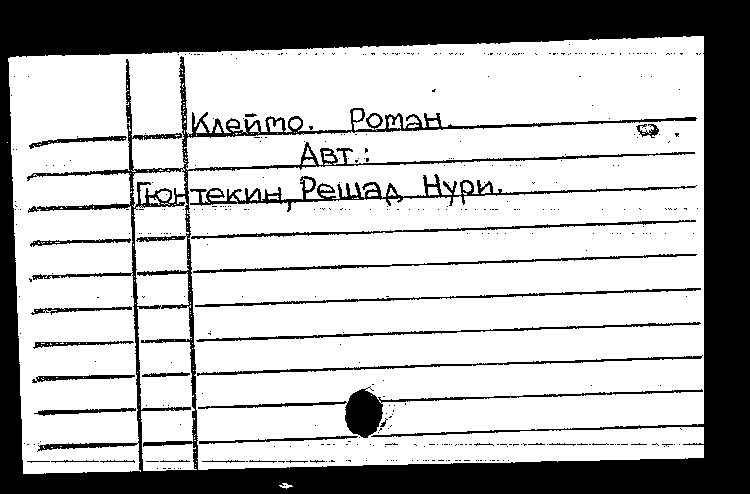 Клеймо. Роман.
Авт.:
Гюнтекин, Решад Нури.